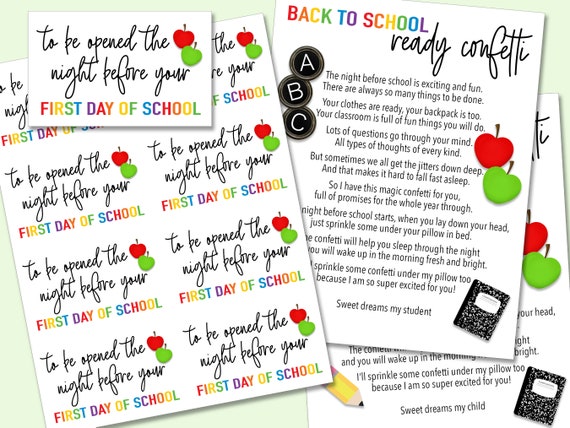 to be opened the
night before your
FIRST DAY OF SCHOOL
to be opened the
night before your
FIRST DAY OF SCHOOL
to be opened the
night before your
FIRST DAY OF SCHOOL
to be opened the
night before your
FIRST DAY OF SCHOOL
to be opened the
night before your
FIRST DAY OF SCHOOL
to be opened the
night before your
FIRST DAY OF SCHOOL
to be opened the
night before your
FIRST DAY OF SCHOOL
FIRST DAY OF SCHOOL
BACK TO SCHOOL
ready confetti
A
B
C
The night before school is exciting and fun.
There are always so many things to be done.
Your clothes are ready, your backpack is too.
Your classroom is full of fun things you will do.
Lots of questions go through your mind.
All types of thoughts of every kind.
But sometimes we all get the jitters down deep.
And that makes it hard to fall fast asleep.
So I have this magic confetti for you,
full of promises for the whole year through.
night before school starts, when you lay down your head,
just sprinkle some under your pillow in bed.
The confetti will help you sleep through the night
you will wake up in the morning fresh and bright.
sprinkle some confetti under my pillow too
because I am so super excited for you!
Sweet dreams my student
your head,
The confetti will
and you will wake up in the morning
bright.
I'll sprinkle some confetti under my pillow too
because I am so super excited for you!
Sweet dreams my child